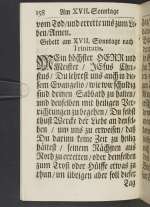 158 Am XVII. Sonntage
vom Tod/ und errette uns zum Le-
ben/ Amen.
Gebett am XVII. Sonntage nach
Trinitatis.
Mein höchster HERR und
Meister/ JEsus Chri-
stus/ Du lehrest uns auch in die-
sem Evangelio/ wie wir schuldig
sind deinen Sabbath zu halten/
und denselben mit heiligen Ver-
richtungen zu begehen/ Du selbst
thust Wercke der Liebe an demsel-
ben/ um uns zu erweisen/ daß
Dir an deine Zeit zu heilig
hältest/ seinem Nächsten aus
Noth zu erretten/ oder demselben
zum Trost oder Hülffe etwas zu
thun/ im übrigen aber soll dieser
Tag